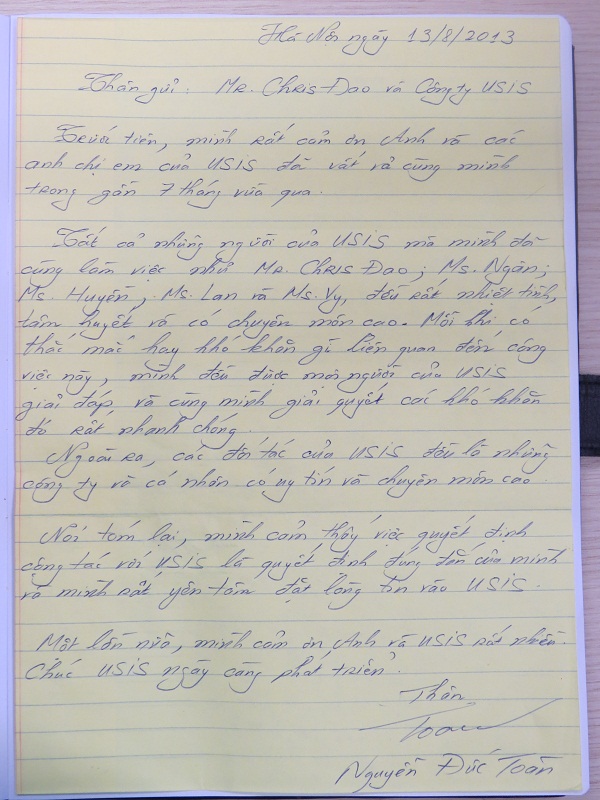 Hà Nội ngày 13/8/2013
Thân gửi: Mr. Chris Đạo và Công ty USIS
Trước tiên, mình rất cảm ơn Anh và các
anh chị em của USIS đã vất vả cùng mình
trong gần 7 tháng vừa qua.
Tất cả những người của USIS mà mình đã
cùng làm việc như Mr. Chris Đạo; Ms. Ngân;
Ms. Huyền; Ms. Lan và Ms. Vy, đều rất nhiệt tình,
tâm huyết và có chuyên môn cao. Mỗi khi có
thắc mắc hay khó khăn gì liên quan đến công
việc này, mình đều được mọi người của USIS
giải đáp, và cùng mình giải quyết các khó khăn
đó rất nhanh chóng.
Ngoài ra, các đối tác của USIS đều là những
công ty và cá nhân có uy tín và chuyên môn cao.
Nói tóm lại, mình cảm thấy việc quyết định
cộng tác với USIS là quyết định đúng đắn của mình
và mình rất yên tâm đặt lòng tin vào USIS.
Một lần nữa, mình cảm ơn Anh và USIS rất nhiều.
Chúc USIS ngày càng phát triển.
Thân,
Toàn
Nguyễn Đức Toàn